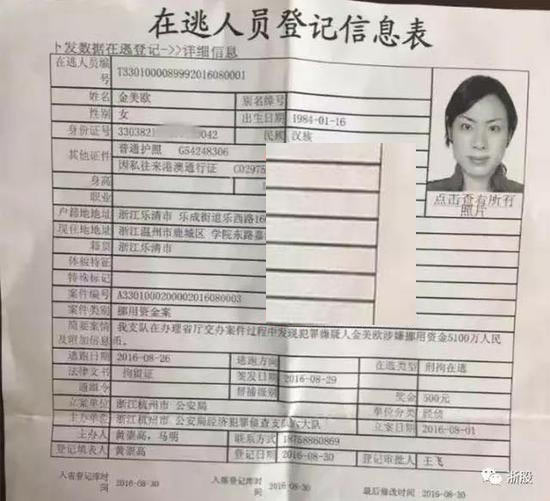 在逃人员登记信息表
卜发数据在逃登记->>详细信息
在逃人员编号 T3301000089992016080001
姓名 金美欧 别名绰号
性别 女 出生日期 1984-01-16
身份证号 330382 042 民族 汉族
其他证件 普通护照 G54248306
因私往来港澳通行证 C02975
身高
职业
户籍地地址 浙江乐清市 乐成街道乐西路16
现住地地址 浙江温州市鹿城区 学院东路嘉
籍贯 浙江乐清市
体貌特征
特殊标记
案件编号 A3301000200002016080003
案件类别 挪用资金案
简要案情及附加信息 我支队在办理省厅交办案件过程中发现犯罪嫌疑人金美欧涉嫌挪用资金5100万人民币。
逃跑日期 2016-08-26 逃跑方向 在逃类型 刑拘在逃
法律文书 拘留证 签发日期 2016-08-29
通缉令 督捕级别 奖金 500元
立案单位 浙江杭州市 公安局 单位分类 经侦
主办单位 浙江杭州市 公安局经济犯罪侦查支队六大队 立案日期 2016-08-01
主办人 黄崇高，马明 联系方式 18758860869
登记填表人 黄崇高 登记日期 2016-08-30 登记审批人 王飞
入省登记库时间 2016-08-30 入部登记库时间 2016-08-30 最后修改时间 2016-08-30
点击查看所有照片
浙股